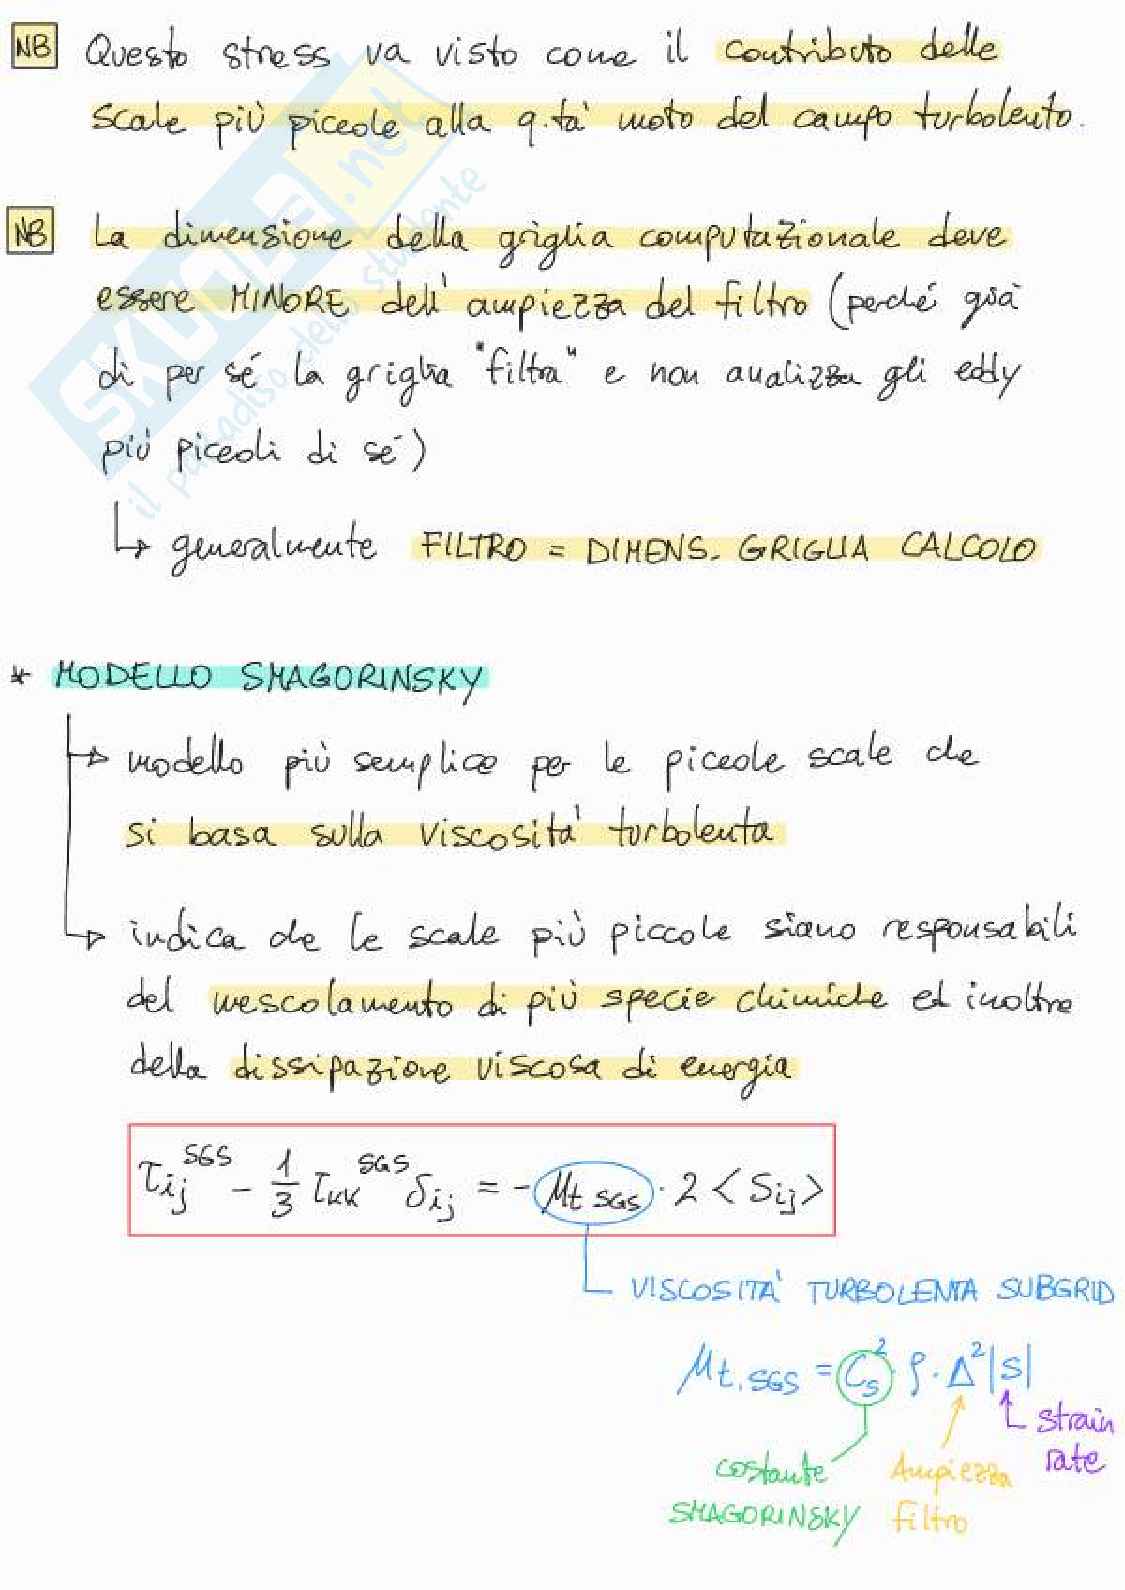 NB Questo stress va visto come il contributo delle
scale più piccole alla q.tà moto del campo turbolento.
NB La dimensione della griglia computazionale deve
essere MINORE dell'ampiezza del filtro (perché già
di per sé la griglia "filtra" e non analizza gli eddy
più piccoli di sé)
↳ generalmente FILTRO = DIMENS. GRIGLIA CALCOLO
* MODELLO SMAGORINSKY
→ modello più semplice per le piccole scale che
si basa sulla viscosità turbolenta
→ indica che le scale più piccole siano responsabili
del mescolamento di più specie chimiche ed inoltre
della dissipazione viscosa di energia
τij^SGS - 1/3 τkk^SGS δij = - μt SGS · 2 <Sij>
VISCOSITÀ TURBOLENTA SUBGRID
μt,SGS = Cs² · ρ · Δ² |S|
strain
rate
costante
SMAGORINSKY
Ampiezza
filtro
SKUOLA.net
il paradiso dello studente